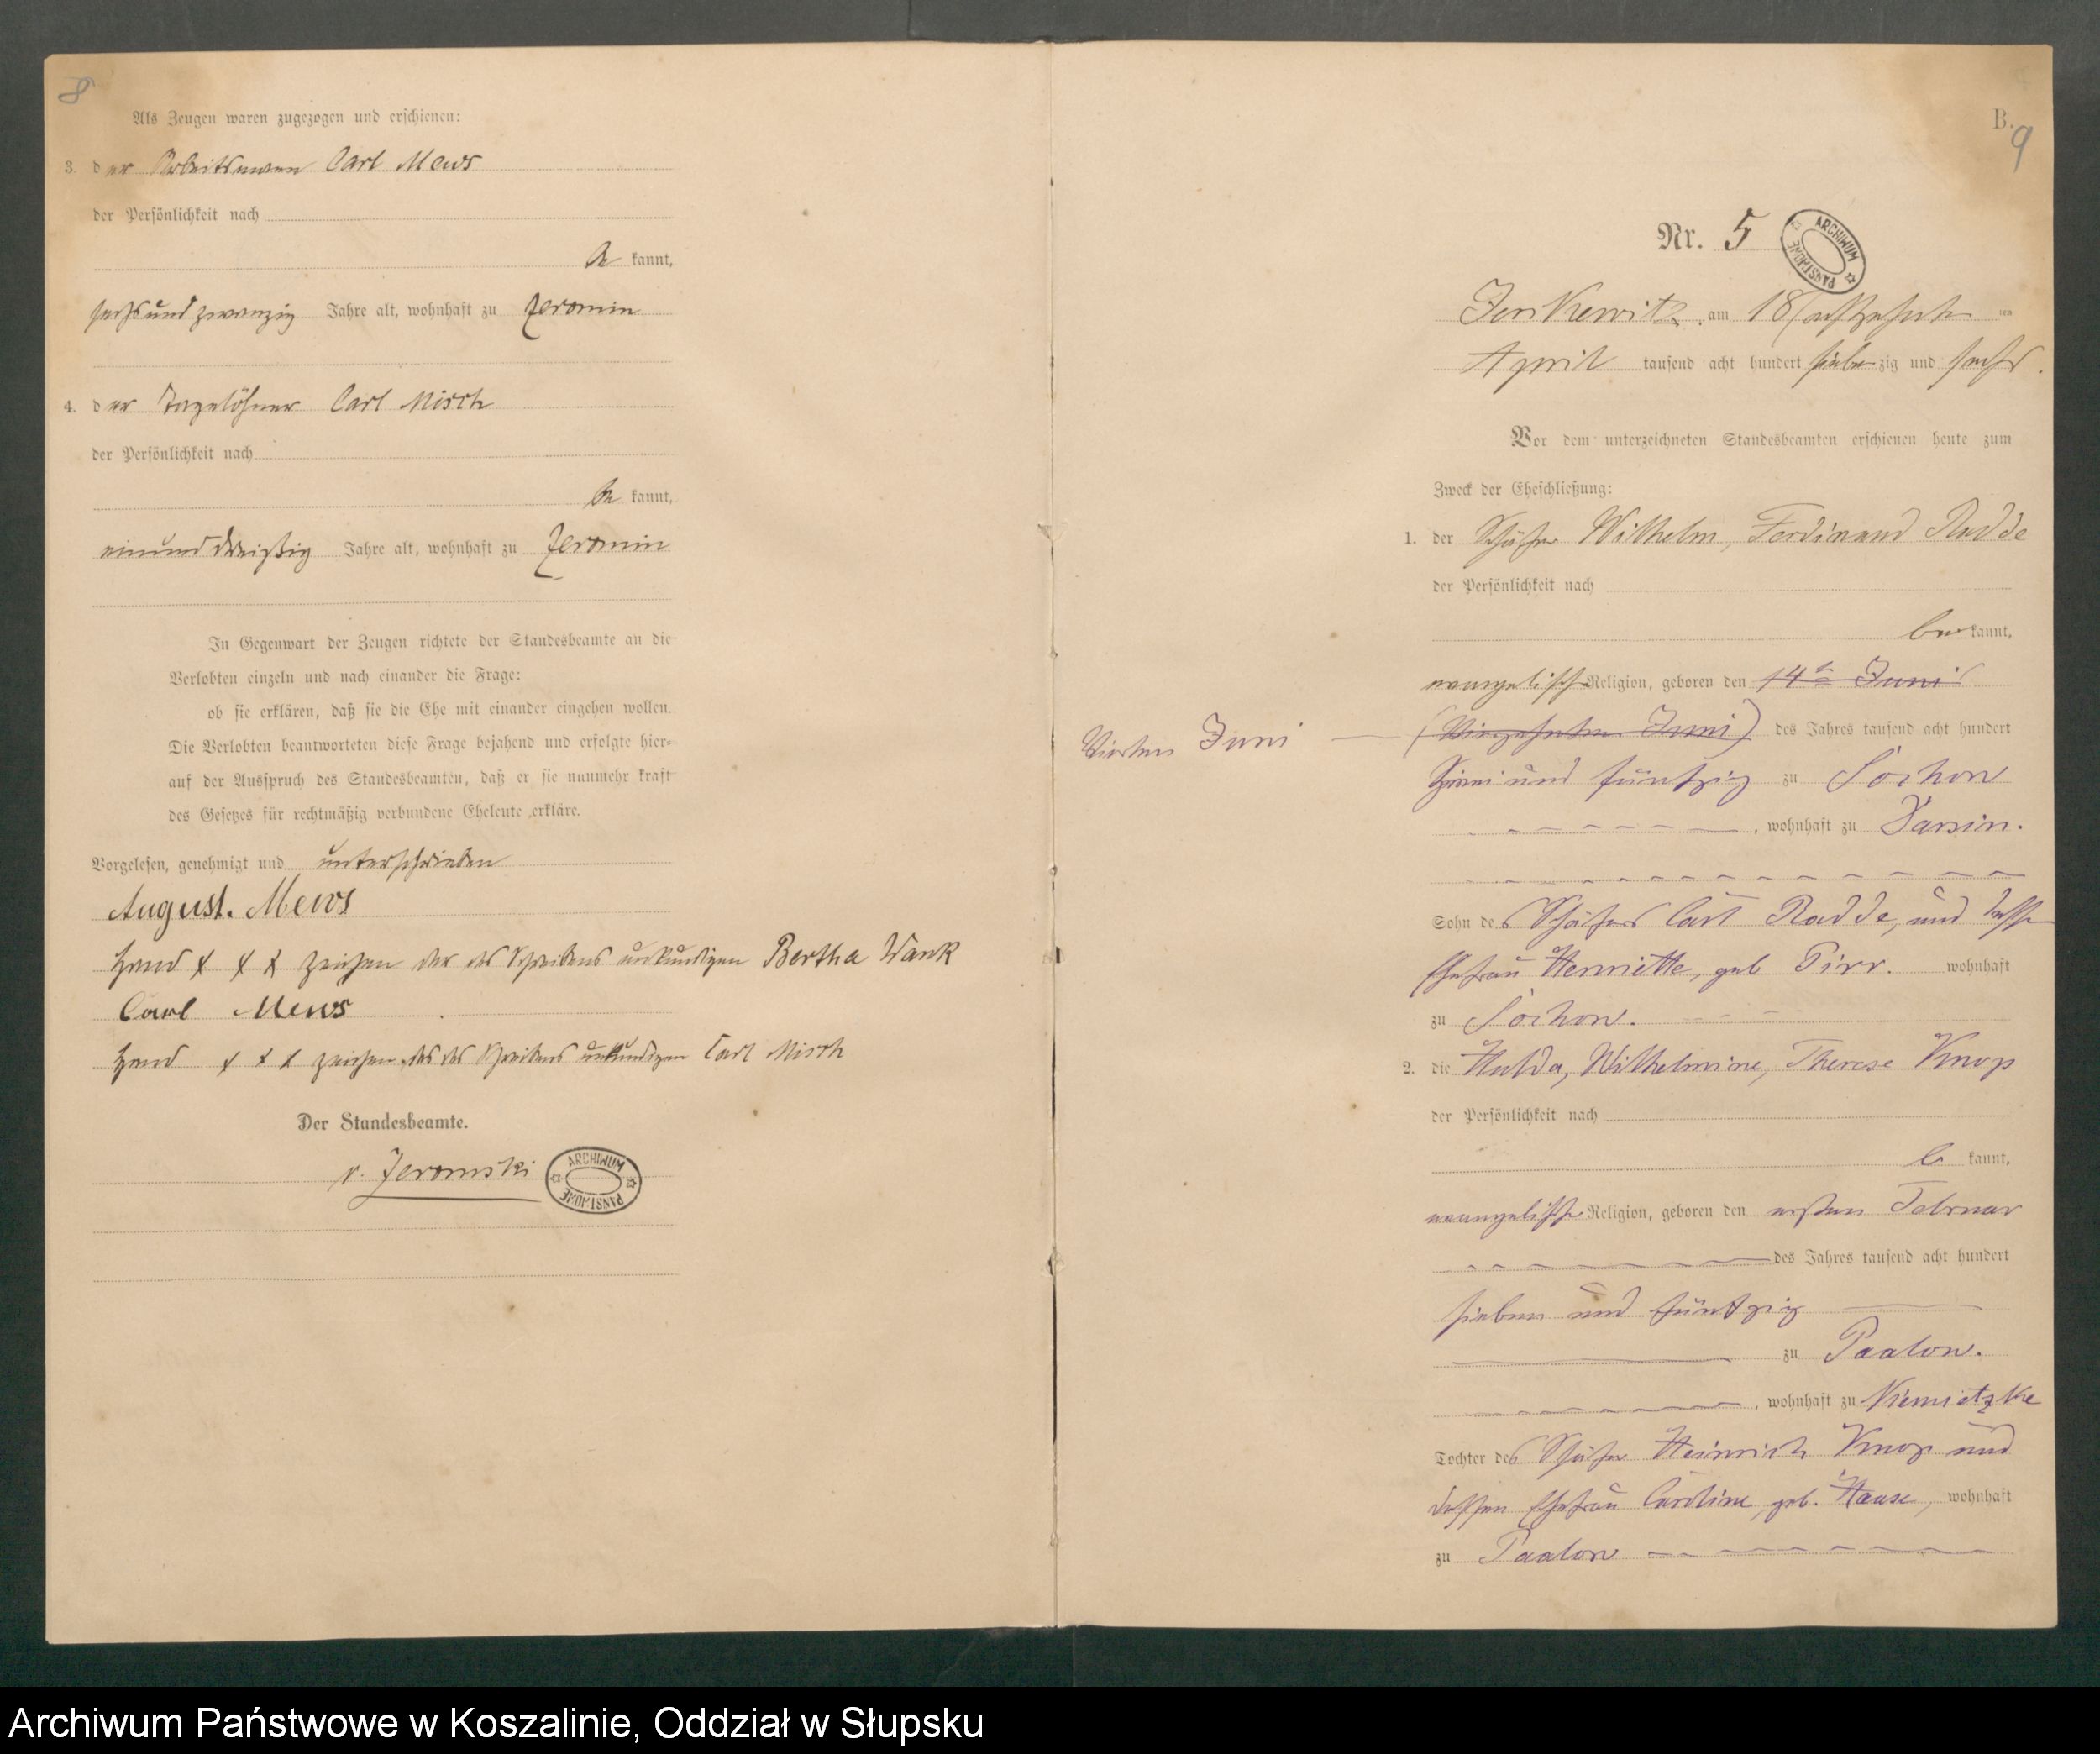 8
Als Zeugen waren zugezogen und erschienen:
3. der Arbeitsmann Carl Mews
der Persönlichkeit nach
be kannt,
sechsundzwanzig Jahre alt, wohnhaft zu Zeromin
4. der Tagelöhner Carl Misch
der Persönlichkeit nach
be kannt,
einunddreißig Jahre alt, wohnhaft zu Zeromin
In Gegenwart der Zeugen richtete der Standesbeamte an die
Verlobten einzeln und nach einander die Frage:
ob sie erklären, daß sie die Ehe mit einander eingehen wollen.
Die Verlobten beantworteten diese Frage bejahend und erfolgte hier-
auf der Ausspruch des Standesbeamten, daß er sie nunmehr kraft
des Gesetzes für rechtmäßig verbundene Eheleute erkläre.
Vorgelesen, genehmigt und unterschrieben
August. Mews
Hand x x x zeichen der des Schreibens unkundigen Bertha Wank
Carl Mews
Hand x x x zeichen des des Schreibens unkundigen Carl Misch
Der Standesbeamte.
v. Zeromski
ARCHIWUM PAŃSTWOWE
B.
9
Nr. 5
ARCHIWUM PAŃSTWOWE
am 18 (achtzehnten
April tausend acht hundert siebenzig und sechs.
Vor dem unterzeichneten Standesbeamten erschienen heute zum
Zweck der Eheschließung:
1. der Schäfer Wilhelm, Ferdinand Radde
der Persönlichkeit nach
be kannt,
evangelischer Religion, geboren den 14ten Juni
Vierten Juni — (Vierzehnten Juni) des Jahres tausend acht hundert
zwei und fünfzig zu Sochow
, wohnhaft zu Varzin.
Sohn des Schäfers Carl Radde, und dessen
Ehefrau Henriette, geb Pirr. wohnhaft
zu Sochow.
2. die Hulda, Wilhelmine, Therese Knop
der Persönlichkeit nach
be kannt,
evangelischer Religion, geboren den ersten Februar
des Jahres tausend acht hundert
sieben und fünfzig
zu Paalow.
, wohnhaft zu Niemietzke
Tochter des Schäfer Heinrich Knop und
dessen Ehefrau Caroline, geb. Haase, wohnhaft
zu Paalow
Archiwum Państwowe w Koszalinie, Oddział w Słupsku